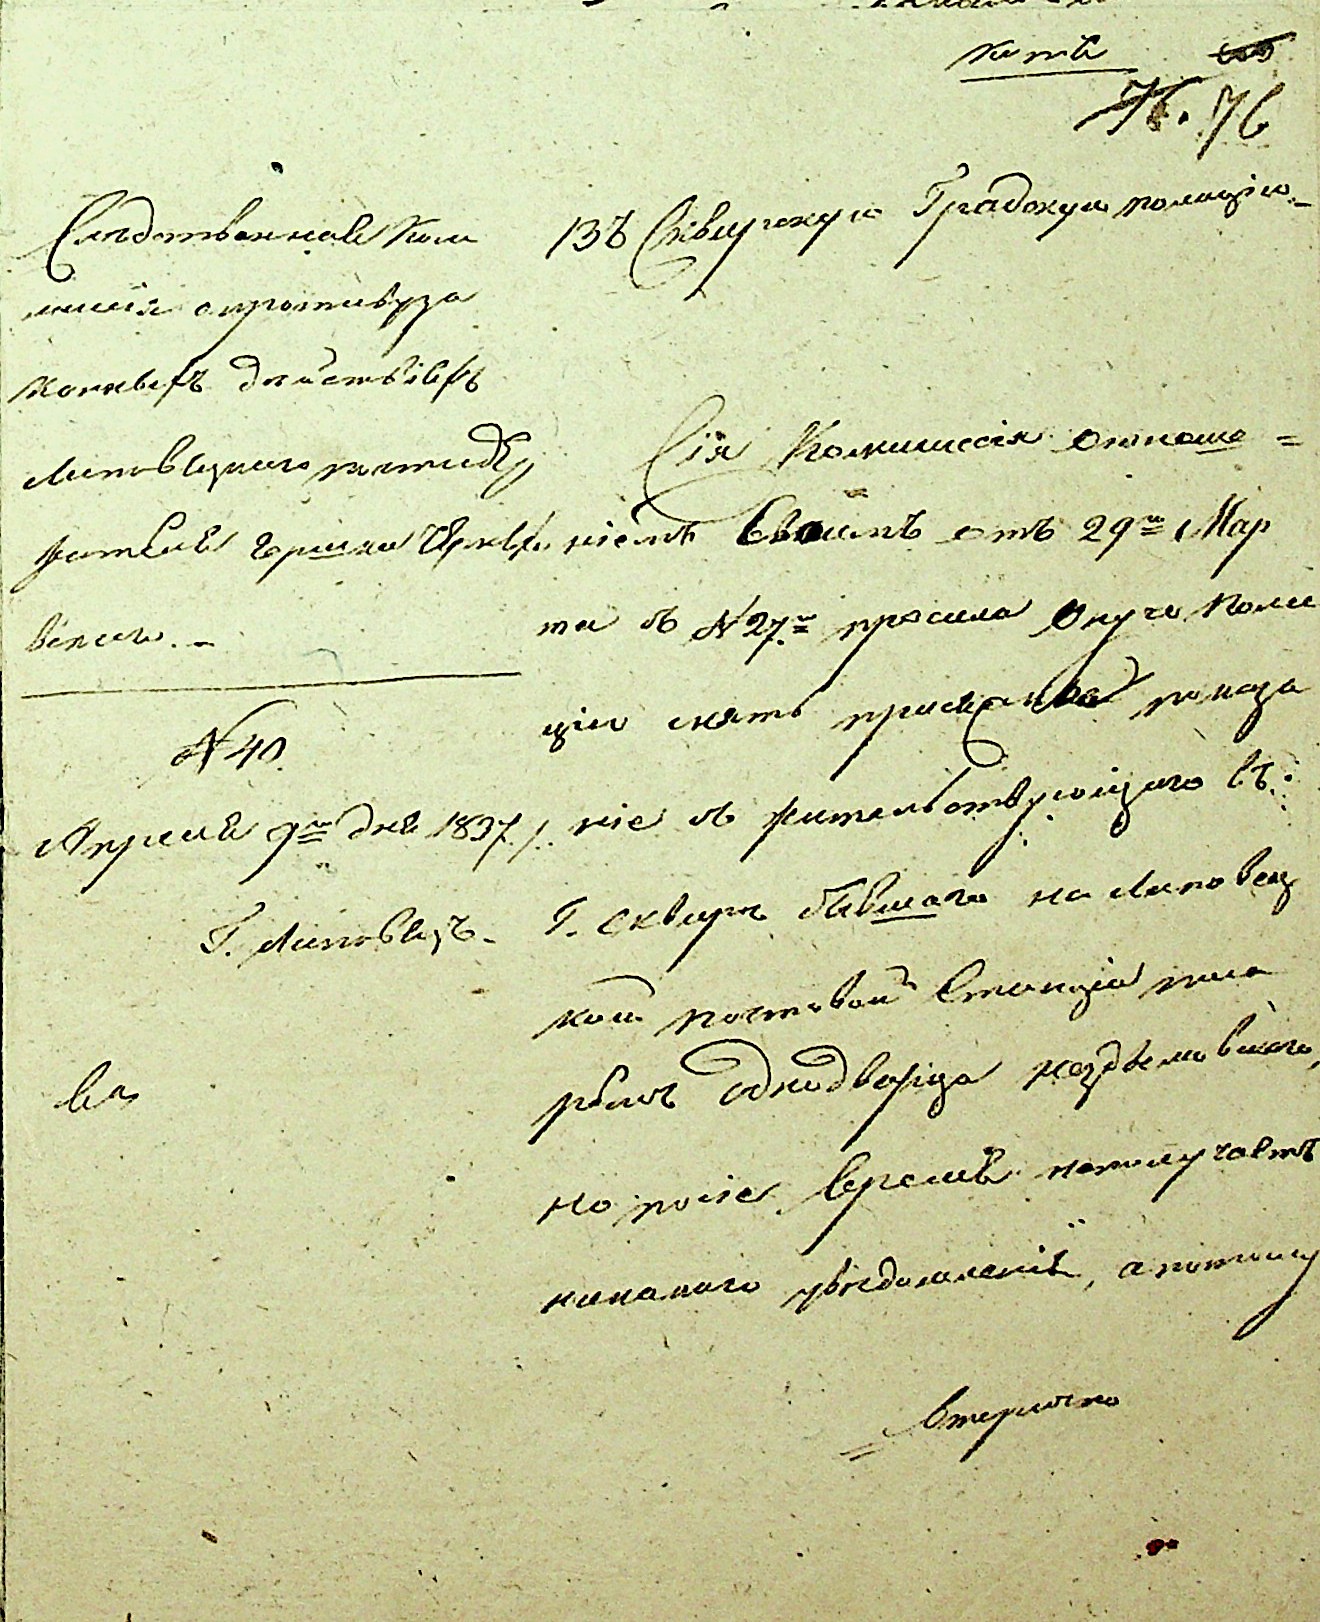 76. 76
Слѣдственная Ком
мисія о противуза
конныхъ дѣйствіяхъ
Липовецкаго почтосо
держателя Гершка
вскаго. -
№ 40.
Апрѣля 9го дня 1837 г.
Г. Липовецъ.
Въ Сквирскую Градскую полицію. -
Сія Коммиссія отноше=
ніемъ Своимъ отъ 29го Мар
та № 27м просила Оную Поли
цію снять присяжное показа
ніе съ жительствующаго въ
Г. Сквирѣ бывшаго на Липовец
кой почтовой Станціи писа
ремъ однодворца
но по сіе время неполучаетъ
никакого увѣдомленія, а потому
вторично